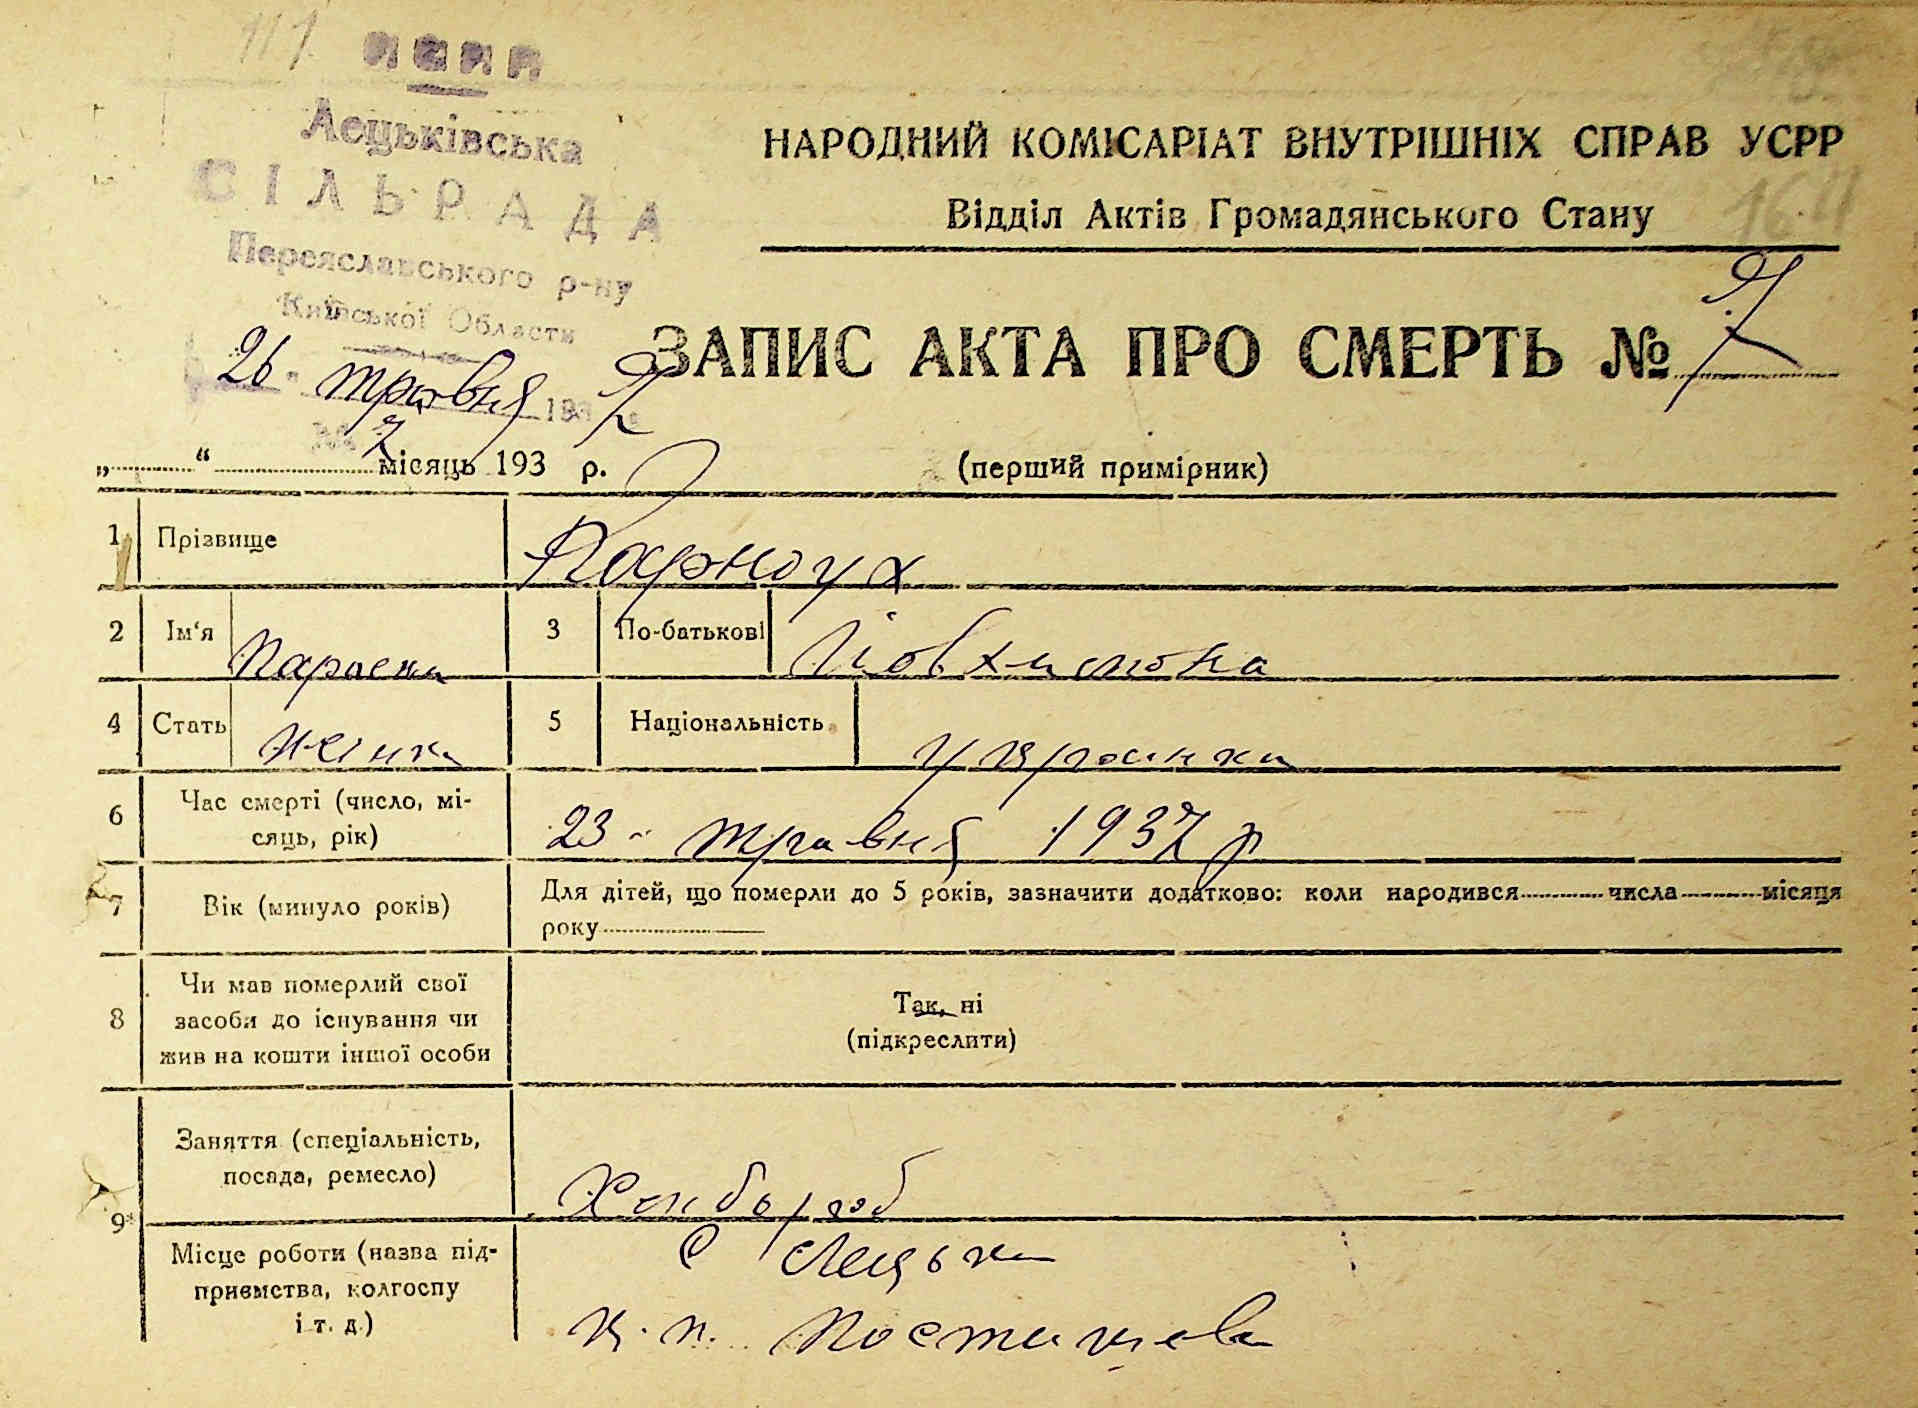 117.
УСРР
Лецьківська
СІЛЬРАДА
Переяславського р-ну
Київської Области
26 травня 193 7
№ 7
НАРОДНИЙ КОМІСАРІАТ ВНУТРІШНІХ СПРАВ УСРР
Відділ Актів Громадянського Стану
ЗАПИС АКТА ПРО СМЕРТЬ № 7
„ “ місяць 193 р.
(перший примірник)
1 Прізвище Карноух
2 Ім‘я Параска 3 По-батькові
4 Стать жінка 5 Національність украинка
6 Час смерті (число, мі-
сяць, рік) 23 - травня 1937 р
7 Вік (минуло років) Для дітей, що померли до 5 років, зазначити додатково: коли народився числа місяця
року
8 Чи мав померлий свої
засоби до існування чи
жив на кошти іншої особи
Так, ні
(підкреслити)
9 Заняття (спеціальність,
посада, ремесло) Хлібороб
Місце роботи (назва під-
приємства, колгоспу
і т. д.)
с Лецьки
к. п. Постишева